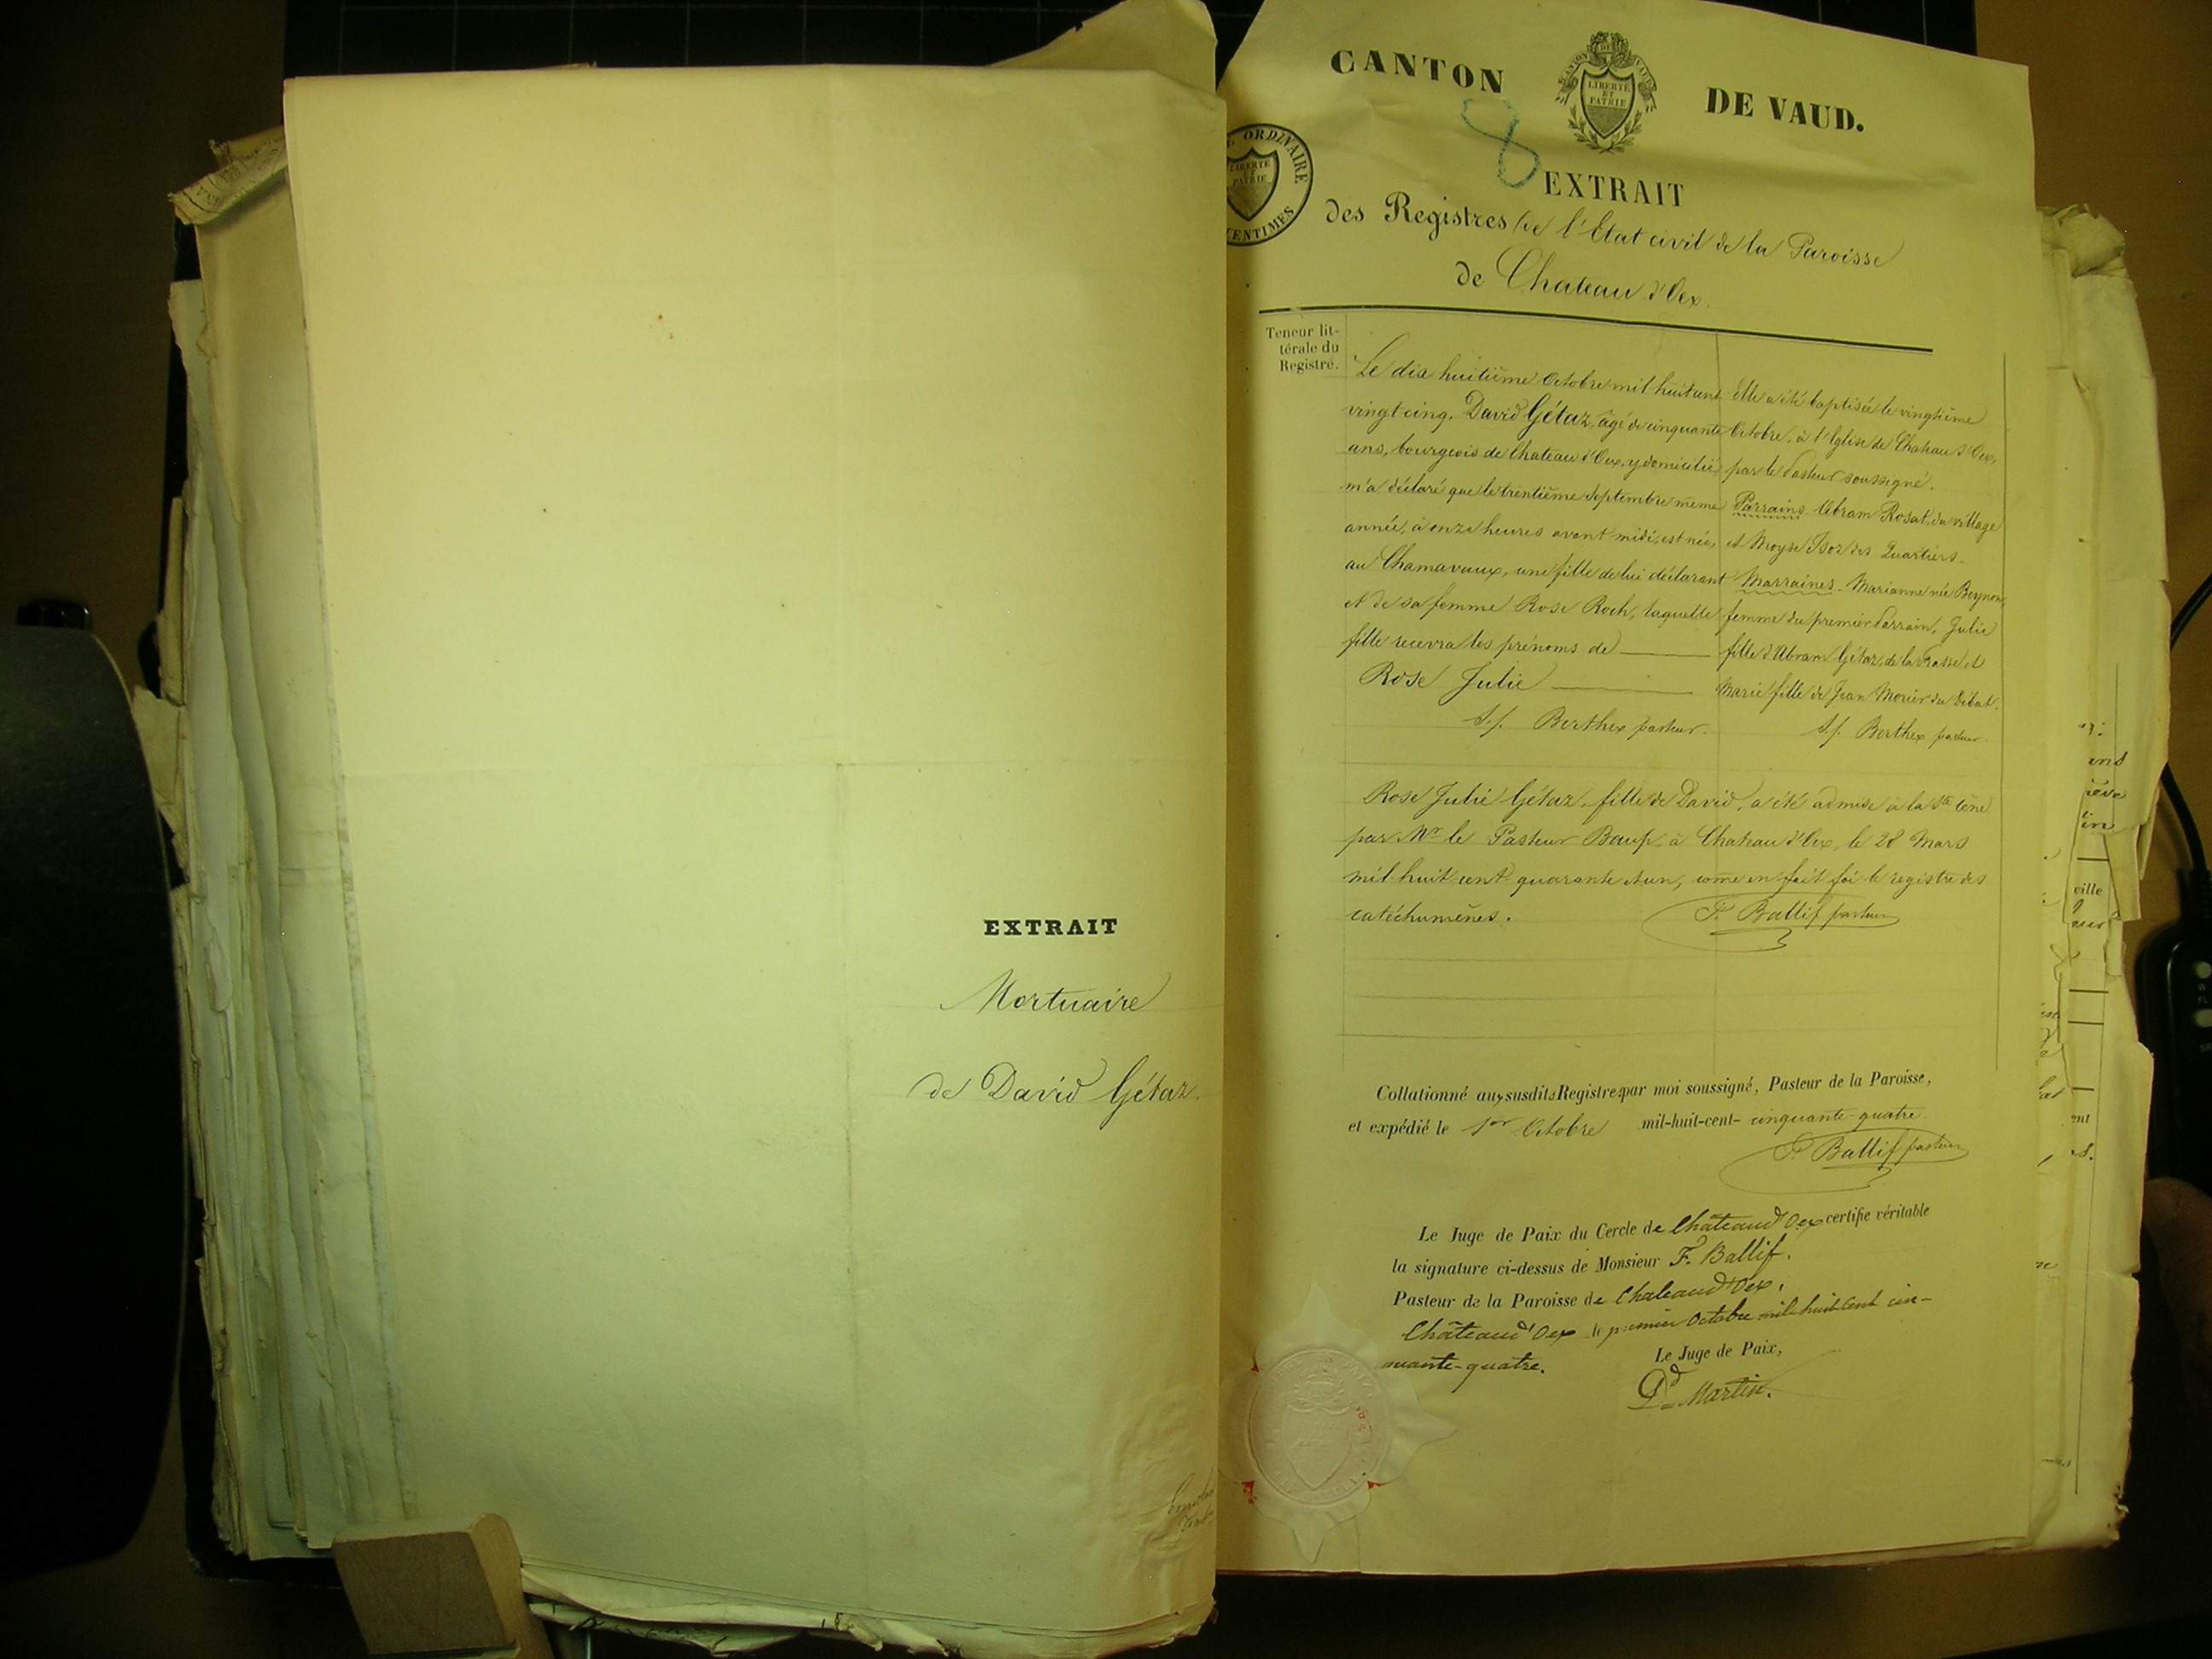 EXTRAIT
Mortuaire
de David Gétaz.
CANTON DE VAUD.
CANTON DE VAUD
LIBERTÉ
ET
PATRIE
8
ORDINAIRE
LIBERTÉ
ET
PATRIE
CENTIMES
EXTRAIT
des Registres de l'Etat civil de la Paroisse
de Chateau d'Oex.
Teneur lit-
térale du
Registre.
Le dix huitième Octobre mil huit cent
vingt cinq, David Gétaz, âgé de cinquante
ans, bourgeois de Chateau d'Oex, y domicilié,
m'a déclaré que le trentième Septembre même
année, à onze heures avant midi, est née,
au Chamavaux, une fille de lui déclarant
et de sa femme Rose Roch, laquelle
fille recevra les prénoms de
Rose Julie
s./. Berthex pasteur.
Elle a été baptisée le vingtième
Octobre, à l'Eglise de Chateau d'Oex,
par le Pasteur soussigné.
Parrains Abram Rosat, du village
et Moyse Isoz des Quartiers.
Marraines. Marianne née Beynon,
femme du premier Parrain, Julie
fille d'Abram Gétaz, de la Frasse et
Marie fille de Jean Morier du Débat.
s./. Berthex pasteur
Rose Julie Gétaz, fille de David, a été admise à la Ste Cène
par Mr le Pasteur Baup, à Chateau d'Oex, le 28 Mars
mil huit cent quarante et un, come en fait foi le registre des
catéchumènes.
F. Ballif pasteur
Collationné aux susdits Registres par moi soussigné, Pasteur de la Paroisse,
et expédié le 1er Octobre mil-huit-cent- cinquante-quatre
F. Ballif pasteur
Le Juge de Paix du Cercle de Châteaud'Oex certifie véritable
la signature ci-dessus de Monsieur F. Ballif.
Pasteur de la Paroisse de Chateaud'Oex,
Châteaud'Oex le premier Octobre mil huit cent cin-
quante-quatre.
Le Juge de Paix,
Dd Martin.